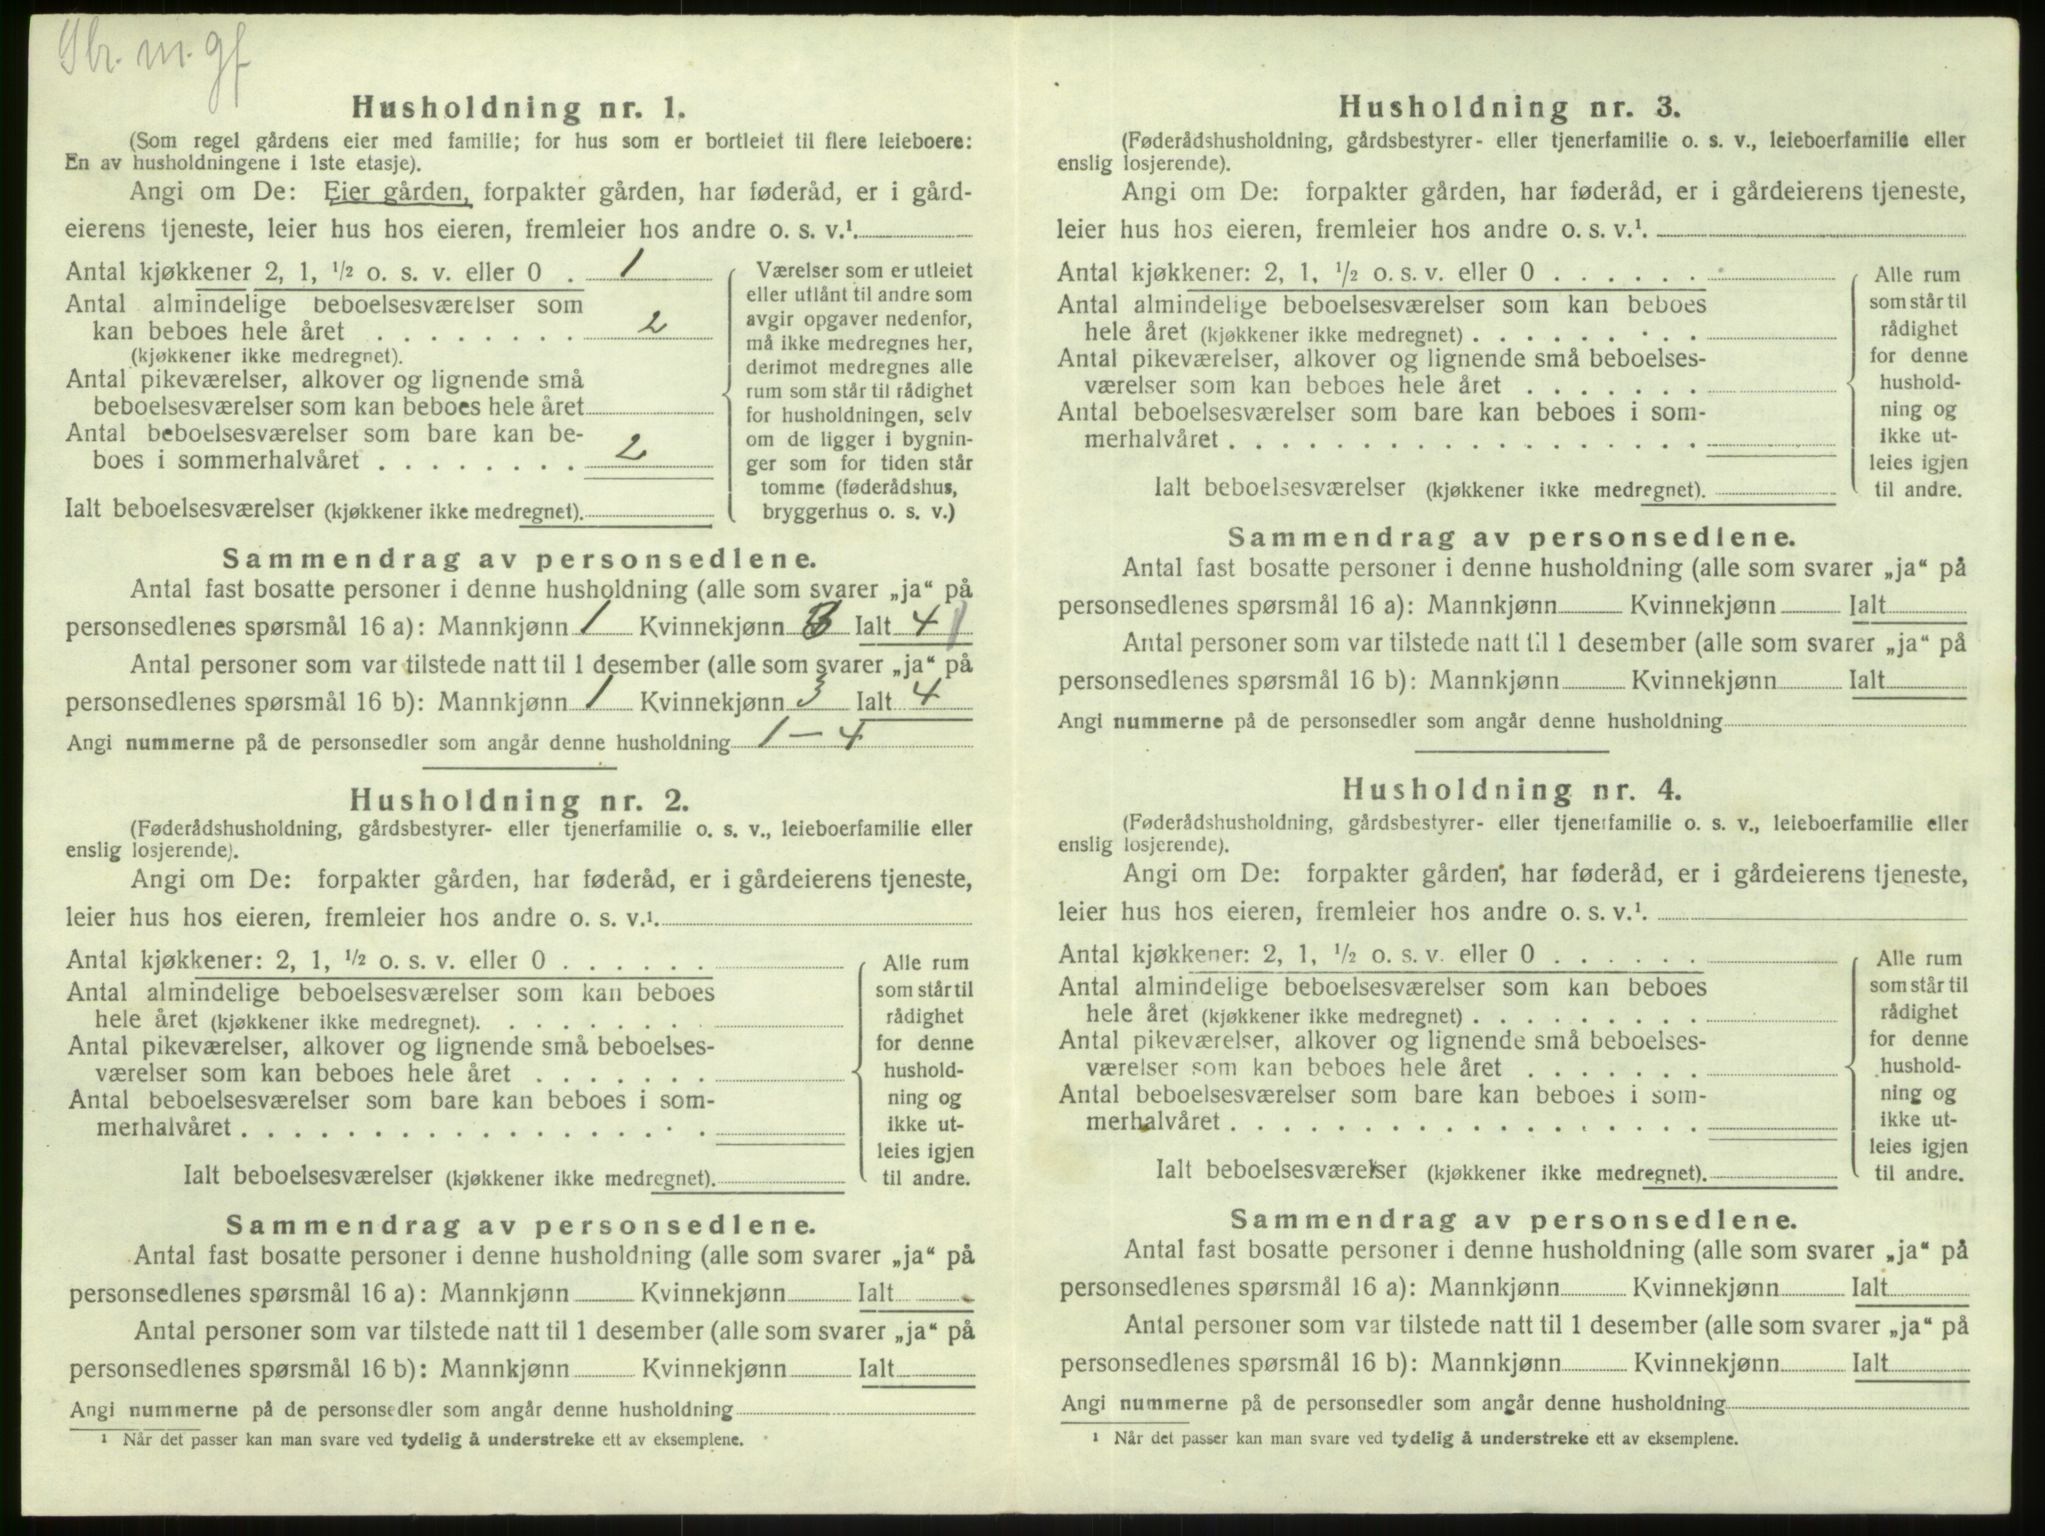 Gbr. m. gf
Husholdning nr. 1.
(Som regel gårdens eier med familie; for hus som er bortleiet til flere leieboere:
En av husholdningene i 1ste etasje).
Angi om De: Eier gården, forpakter gården, har føderåd, er i gård-
eierens tjeneste, leier hus hos eieren, fremleier hos andre o. s. v.¹.
Antal kjøkkener 2, 1, ½ o. s. v. eller 0 . 1
Antal almindelige beboelsesværelser som
kan beboes hele året . . . . . . . . 2
(kjøkkener ikke medregnet).
Antal pikeværelser, alkover og lignende små
beboelsesværelser som kan beboes hele året
Antal beboelsesværelser som bare kan be-
boes i sommerhalvåret . . . . . . . . 2
Ialt beboelsesværelser (kjøkkener ikke medregnet).
Værelser som er utleiet
eller utlånt til andre som
avgir opgaver nedenfor,
må ikke medregnes her,
derimot medregnes alle
rum som står til rådighet
for husholdningen, selv
om de ligger i bygnin-
ger som for tiden står
tomme (føderådshus,
bryggerhus o. s. v.)
Sammendrag av personsedlene.
Antal fast bosatte personer i denne husholdning (alle som svarer „ja“ på
personsedlenes spørsmål 16 a): Mannkjønn 1 Kvinnekjønn 3 Ialt 4
Antal personer som var tilstede natt til 1 desember (alle som svarer „ja“ på
personsedlenes spørsmål 16 b): Mannkjønn 1 Kvinnekjønn 3 Ialt 4
Angi nummerne på de personsedler som angår denne husholdning 1 – 4
Husholdning nr. 2.
(Føderådshusholdning, gårdsbestyrer- eller tjenerfamilie o. s. v., leieboerfamilie eller
enslig losjerende).
Angi om De: forpakter gården, har føderåd, er i gårdeierens tjeneste,
leier hus hos eieren, fremleier hos andre o. s. v.¹.
Antal kjøkkener: 2, 1, ½ o. s. v. eller 0 . . . . . .
Antal almindelige beboelsesværelser som kan beboes
hele året (kjøkkener ikke medregnet). . . . . . . . .
Antal pikeværelser, alkover og lignende små beboelses-
værelser som kan beboes hele året . . . . . . .
Antal beboelsesværelser som bare kan beboes i som-
merhalvåret . . . . . . . . . . . . . . . . . .
Ialt beboelsesværelser (kjøkkener ikke medregnet).
Alle rum
som står til
rådighet
for denne
hushold-
ning og
ikke ut-
leies igjen
til andre.
Sammendrag av personsedlene.
Antal fast bosatte personer i denne husholdning (alle som svarer „ja“ på
personsedlenes spørsmål 16 a): Mannkjønn Kvinnekjønn Ialt
Antal personer som var tilstede natt til 1 desember (alle som svarer „ja“ på
personsedlenes spørsmål 16 b): Mannkjønn Kvinnekjønn Ialt
Angi nummerne på de personsedler som angår denne husholdning
¹ Når det passer kan man svare ved tydelig å understreke ett av eksemplene.
Husholdning nr. 3.
(Føderådshusholdning, gårdsbestyrer- eller tjenerfamilie o. s. v., leieboerfamilie eller
enslig losjerende).
Angi om De: forpakter gården, har føderåd, er i gårdeierens tjeneste,
leier hus hos eieren, fremleier hos andre o. s. v.¹.
Antal kjøkkener: 2, 1, ½ o. s. v. eller 0 . . . . . .
Antal almindelige beboelsesværelser som kan beboes
hele året (kjøkkener ikke medregnet) . . . . . . . . .
Antal pikeværelser, alkover og lignende små beboelses-
værelser som kan beboes hele året . . . . . . .
Antal beboelsesværelser som bare kan beboes i som-
merhalvåret . . . . . . . . . . . . . . . . . .
Ialt beboelsesværelser (kjøkkener ikke medregnet).
Alle rum
som står til
rådighet
for denne
hushold-
ning og
ikke ut-
leies igjen
til andre.
Sammendrag av personsedlene.
Antal fast bosatte personer i denne husholdning (alle som svarer „ja“ på
personsedlenes spørsmål 16 a): Mannkjønn Kvinnekjønn Ialt
Antal personer som var tilstede natt til 1 desember (alle som svarer „ja“ på
personsedlenes spørsmål 16 b): Mannkjønn Kvinnekjønn Ialt
Angi nummerne på de personsedler som angår denne husholdning
Husholdning nr. 4.
(Føderådshusholdning, gårdsbestyrer- eller tjenerfamilie o. s. v., leieboerfamilie eller
enslig losjerende).
Angi om De: forpakter gården, har føderåd, er i gårdeierens tjeneste,
leier hus hos eieren, fremleier hos andre o. s. v.¹.
Antal kjøkkener: 2, 1, ½ o. s. v. eller 0 . . . . . .
Antal almindelige beboelsesværelser som kan beboes
hele året (kjøkkener ikke medregnet) . . . . . . . . .
Antal pikeværelser, alkover og lignende små beboelses-
værelser som kan beboes hele året . . . . . . .
Antal beboelsesværelser som bare kan beboes i som-
merhalvåret . . . . . . . . . . . . . . . . . .
Ialt beboelsesværelser (kjøkkener ikke medregnet).
Alle rum
som står til
rådighet
for denne
hushold-
ning og
ikke ut-
leies igjen
til andre.
Sammendrag av personsedlene.
Antal fast bosatte personer i denne husholdning (alle som svarer „ja“ på
personsedlenes spørsmål 16 a): Mannkjønn Kvinnekjønn Ialt
Antal personer som var tilstede natt til 1 desember (alle som svarer „ja“ på
personsedlenes spørsmål 16 b): Mannkjønn Kvinnekjønn Ialt
Angi nummerne på de personsedler som angår denne husholdning
¹ Når det passer kan man svare ved tydelig å understreke ett av eksemplene.